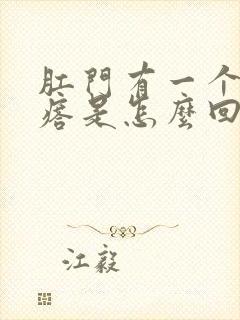 肛門有一个
痞是怎麼回
江毅